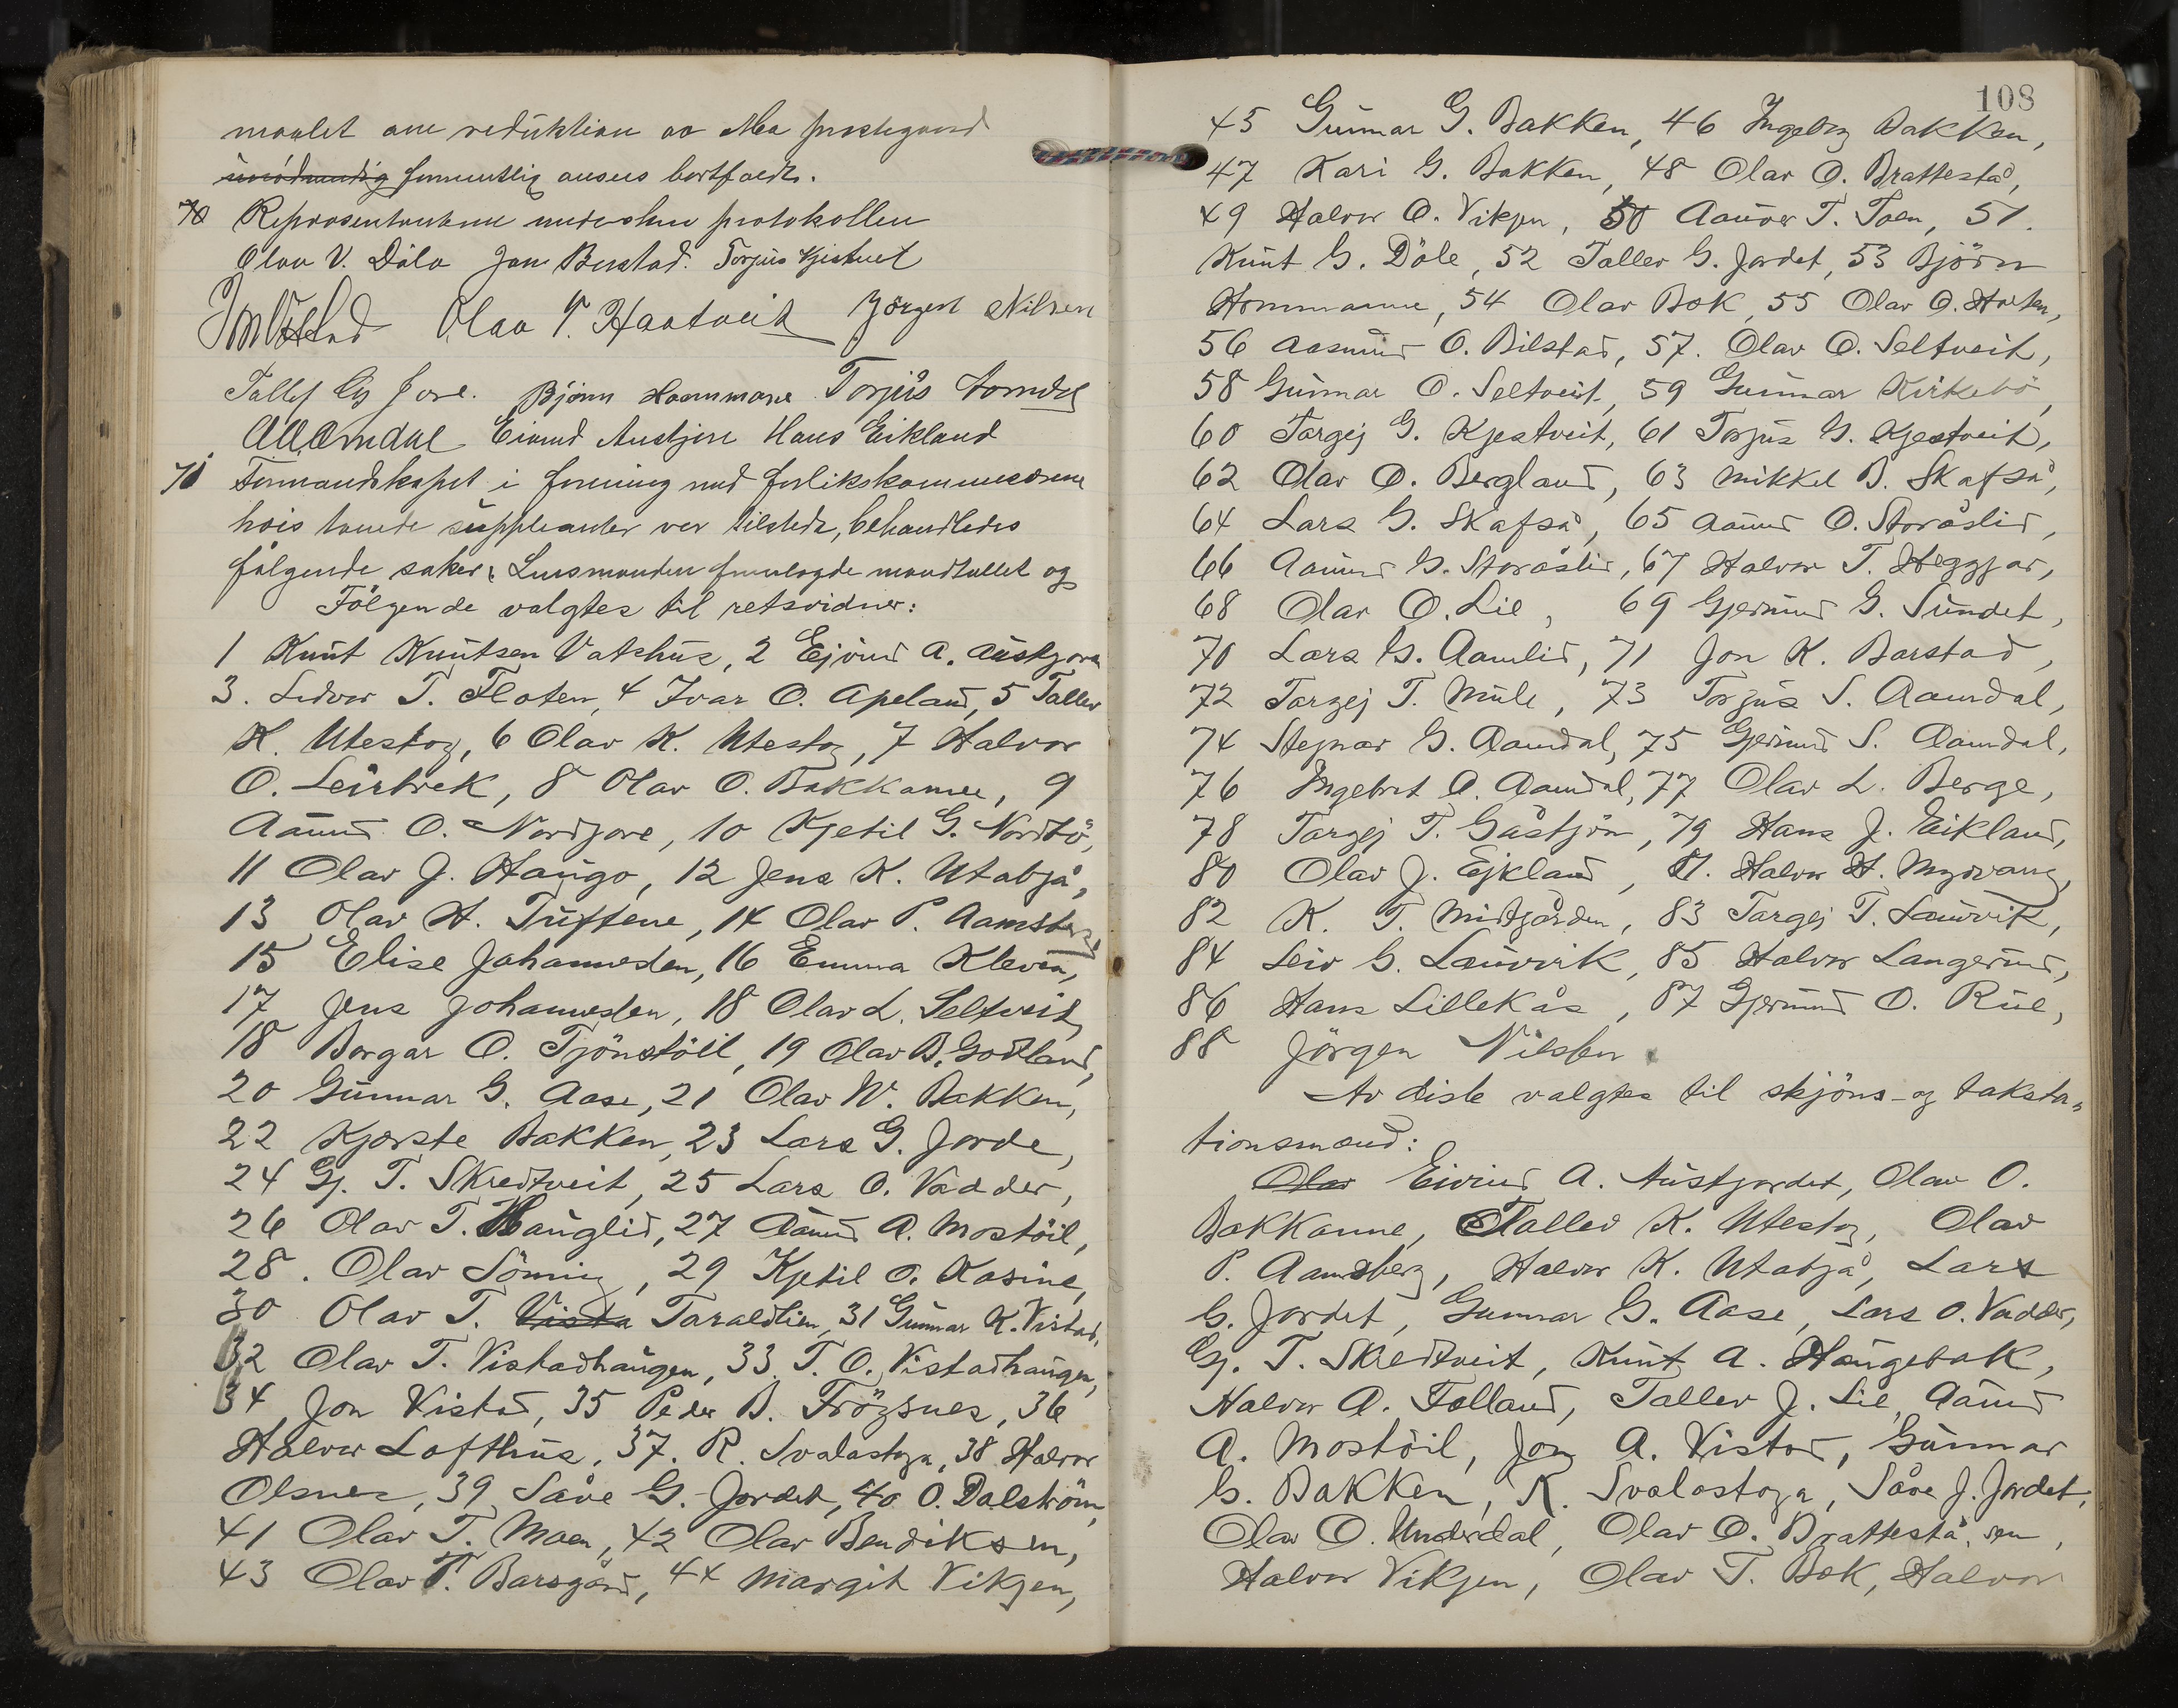 maalet om reduktion av Mo prestegaard
unödvendig forventlig ansees bortfaldt.
70 Repræsentantene underskrev protokollen
Olav V. Dåla Jon Berstad. Torjus Kjistveit
Olav T. Haatveit Jörgen Nilsen
Tallef G. Jore. Björn Hommane Torjus Aamdal
A. Aamdal Eivind Austjore Hans Eikland
71 Formandskapet i forening med forlikskommissærene
hvis varende suppleanter var tilstede, behandledes
fölgende saker: Lensmanden fremlagde mandtallet og
Fölgende valgtes til retsvidner:
1 Knut Knutsen Vatshus, 2 Ejvind A. Austjore
3. Ledvor T. Floten, 4 Ivar O. Apeland, 5 Tallev
K. Utestog, 6 Olav K. Utestog, 7 Halvor
O. Leirbrek, 8 Olav O. Bakkane, 9
Aanund O. Nordjore, 10 Kjetil G. Nordbö,
11 Olav J. Haugo, 12 Jens K. Utabjå,
13 Olav H. Tuftene, 14 Olav P. Aamsberg
15 Elise Johannesen, 16 Emma Kleven,
17 Jens Johannesen, 18 Olav L. Seltveit,
18 Borgar O. Tjönstöil, 19 Olav B. Godtland,
20 Gunnar G. Aase, 21 Olav N. Bakken,
22 Kjerste Bakken, 23 Lars G. Jorde,
24 Gj. T. Skredtveit, 25 Lars O. Vadder,
26 Olav T. Hauglid, 27 Aanund A. Mostöil,
28. Olav Sönning, 29 Kjetil O. Kosine,
30 Olav T. Vista Taraldlien, 31 Gunnar K. Vistad,
32 Olav T. Vistadhaugen, 33. T. O. Vistadhaugen,
34 Jon Vistad, 35 Peder B. Fröysnes, 36
Halvor Lofthus, 37. R. Svalastoga, 38 Halvor
Olsnes, 39 Såve G. Jordet, 40 O. Dalström,
41 Olav T. Moen, 42 Olav Bendiksen,
43 Olav T. Barsgård, 44 Margit Vikjen,
108
45 Gunnar G. Bakken, 46 Ingeborg Bakken,
47 Kari G. Bakken, 48 Olav O. Brattestå,
49 Halvor O. Vikjen, 50 Aanver T. Toen, 51.
Knut G. Döle, 52 Tallev G. Jordet, 53 Björn
Hommanne, 54 Olav Bok, 55 Olav O. Haatveit,
56 Aasmund O. Bilstad, 57. Olav O. Seltveit,
58 Gunnar O. Seltveit, 59 Gunnar Kirkebö,
60 Targej G. Kjestveit, 61 Torjus G. Kjestveit,
62 Olav O. Bergland, 63 Mikkel B. Skafså,
64 Lars G. Skafså, 65 Aanund O. Storåslid,
66 Aanund G. Storåslid, 67 Halvor T. Heggjar,
68 Olav O. Lie, 69 Gjermund G. Sundet,
70 Lars G. Aamlid, 71 Jon K. Barstad,
72 Targej T. Mule, 73 Torjus S. Aamdal,
74 Steinar G. Aamdal, 75 Gjermund S. Aamdal,
76 Ingebret A. Aamdal, 77 Olav L. Berge,
78 Targej T. Gåstjön, 79 Hans J. Eikland,
80 Olav J. Ejkland, 81. Halvor H. Myrvang,
82 K. T. Midtgården, 83 Targej T. Lauvvik,
84 Leiv G. Lauvvik, 85 Halvor Langerud,
86 Hans Lillekås, 87 Gjermund O. Rue,
88 Jörgen Nilssen
Av disse valgtes til skjöns- og taksta-
tionsmænd:
Olav Eivind A. Austjordet, Olav O.
Bakkanne, Tallev K. Utestog, Olav
P. Aamsberg, Halvor K. Utabjå, Lars
G. Jordet, Gunnar G. Aase, Lars O. Vadder,
Gj. T. Skredtveit, Knut A. Haugebak,
Halvor A. Folland, Tallev J. Lie, Aanund
A. Mostöil, Jon A. Vistad, Gunnar
G. Bakken, R. Svalastoga, Såve J. Jordet,
Olav O. Underdal, Olav O. Brattestå, sen,
Halvor Vikjen, Olav T. Bok, Halvor